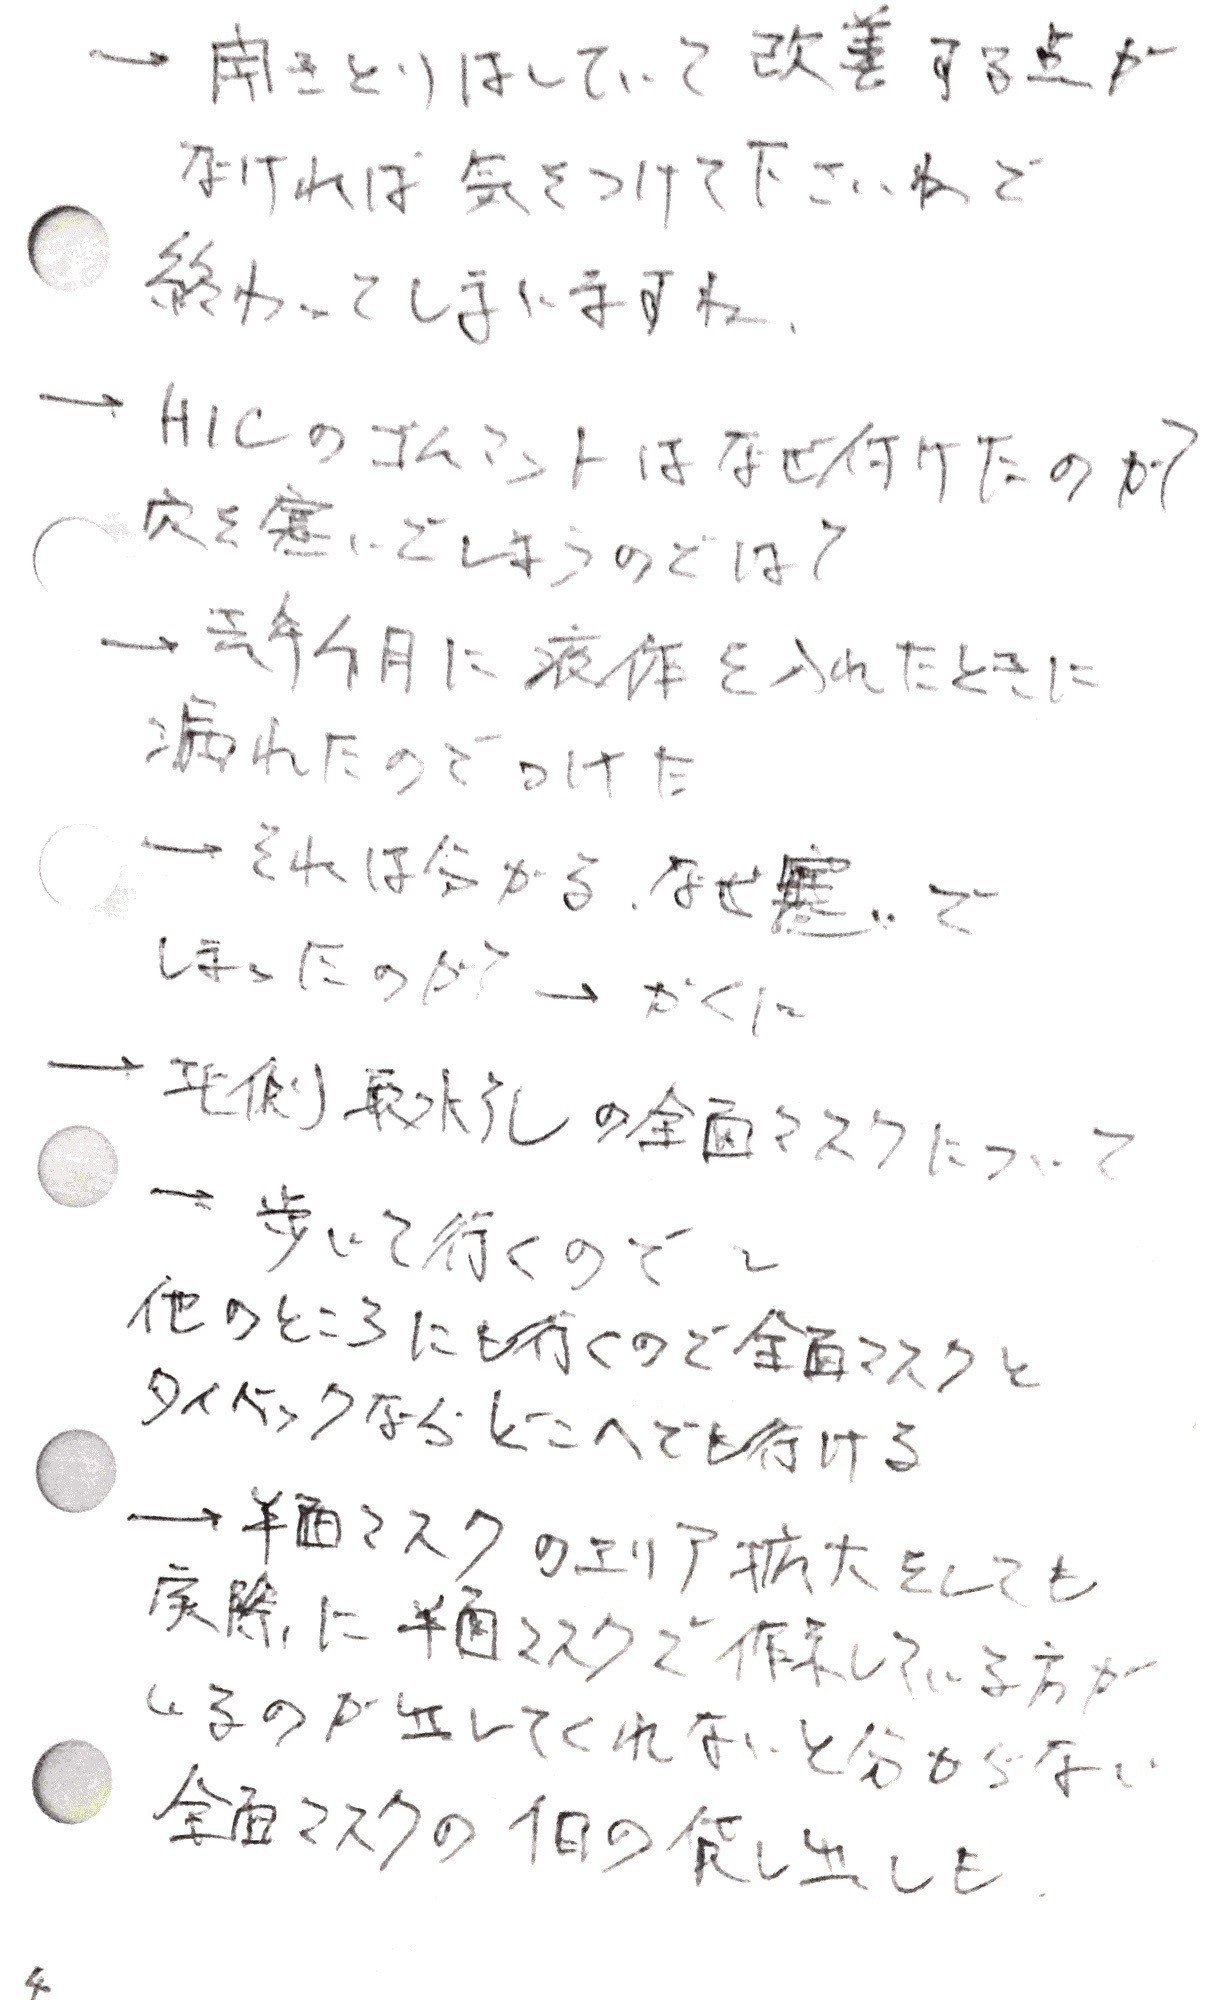 → 聞きとりはしていて改善する点が
なければ気をつけて下さいねで
終わってしまいますね、
→ HICのゴムマットはなぜ付けたのか?
穴を塞いでしまうのでは?
→ 去年4月に液体を入れたときに
漏れたのでつけた
→ それは分かる、なぜ塞いで
しまったのか? → かくにん
→ 北側取水 の全面マスクについて
→ 歩いて行くので〜
他のところにも行くので全面マスクと
タイベックならどこへでも行ける
→ 半面マスクのエリア拡大をしても
実際に半面マスクで作業している方が
いるのか出してくれないと分からない
全面マスクの1日の貸し出しも.
4